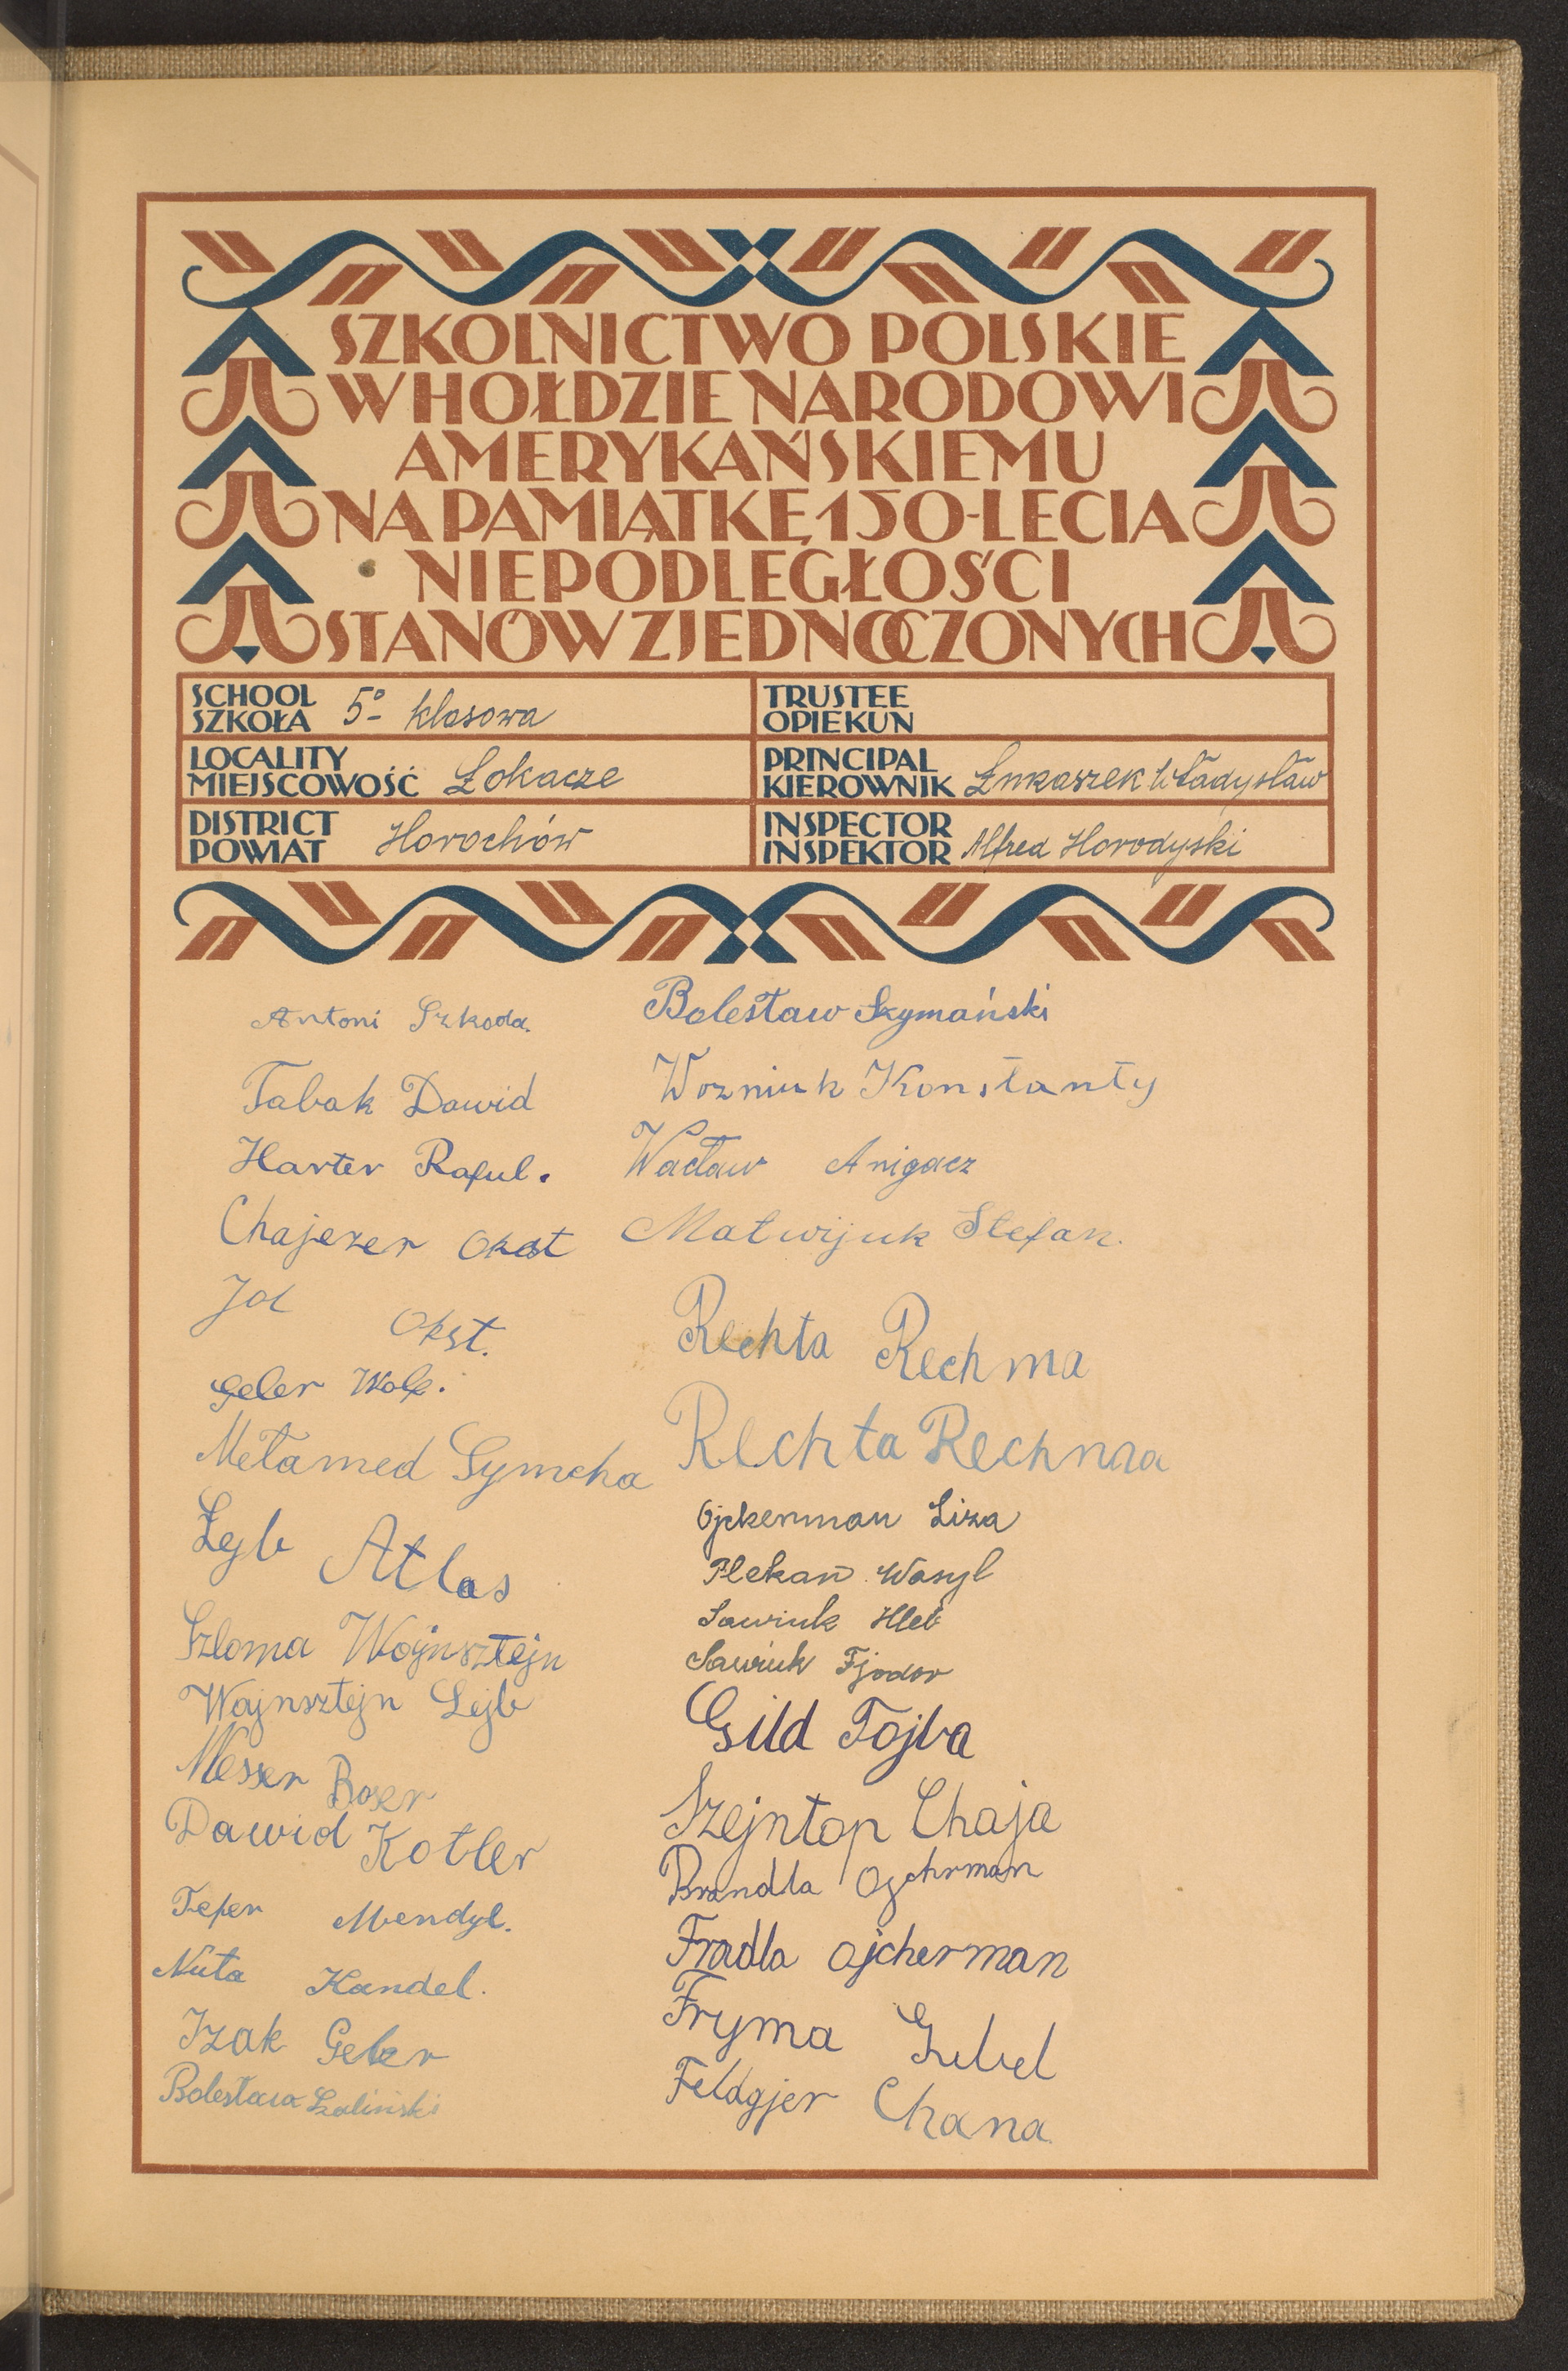 SZKOLNICTWO POLSKIE
W HOŁDZIE NARODOWI
AMERYKAŃSKIEMU
NA PAMIĄTKĘ 150-LECIA
NIEPODLEGŁOŚCI
STANÓW ZJEDNOCZONYCH
SCHOOL
SZKOŁA 5º klasowa
TRUSTEE
OPIEKUN
LOCALITY
MIEJSCOWOŚĆ Łokacze
PRINCIPAL
KIEROWNIK Łukaszek Władysław
DISTRICT
POWIAT Horochów
INSPECTOR
INSPEKTOR Alfred Horodyski
Antoni Szkoda.
Tabak Dawid
Harter Raful.
Chajezer Okst
Jol Okst.
Geler Wolf.
Metamed Symcha
Lejb Atlas
Szloma Wajnsztejn
Wajnsztejn Lejb
Messer Boer
Dawid Kotler
Tefer Mendyl.
Nuta Kandel.
Izak Geler
Bolesław Szaliński
Bolesław Szymański
Wozniuk Konstanty
Wacław Anigacz
Matwijuk Stefan.
Rechta Rechma
Rechta Rechma
Ojckenman Liza
Plekan Wasyl
Sawiuk Hleb
Sawiuk Fjodor
Gild Tojba
Szejntop Chaja
Brandla Ojchrman
Fradla Ojcherman
Fryma Gubel
Feldgjer Chana